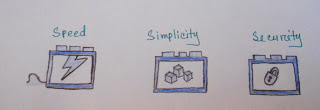 Speed
Simplicity
Security